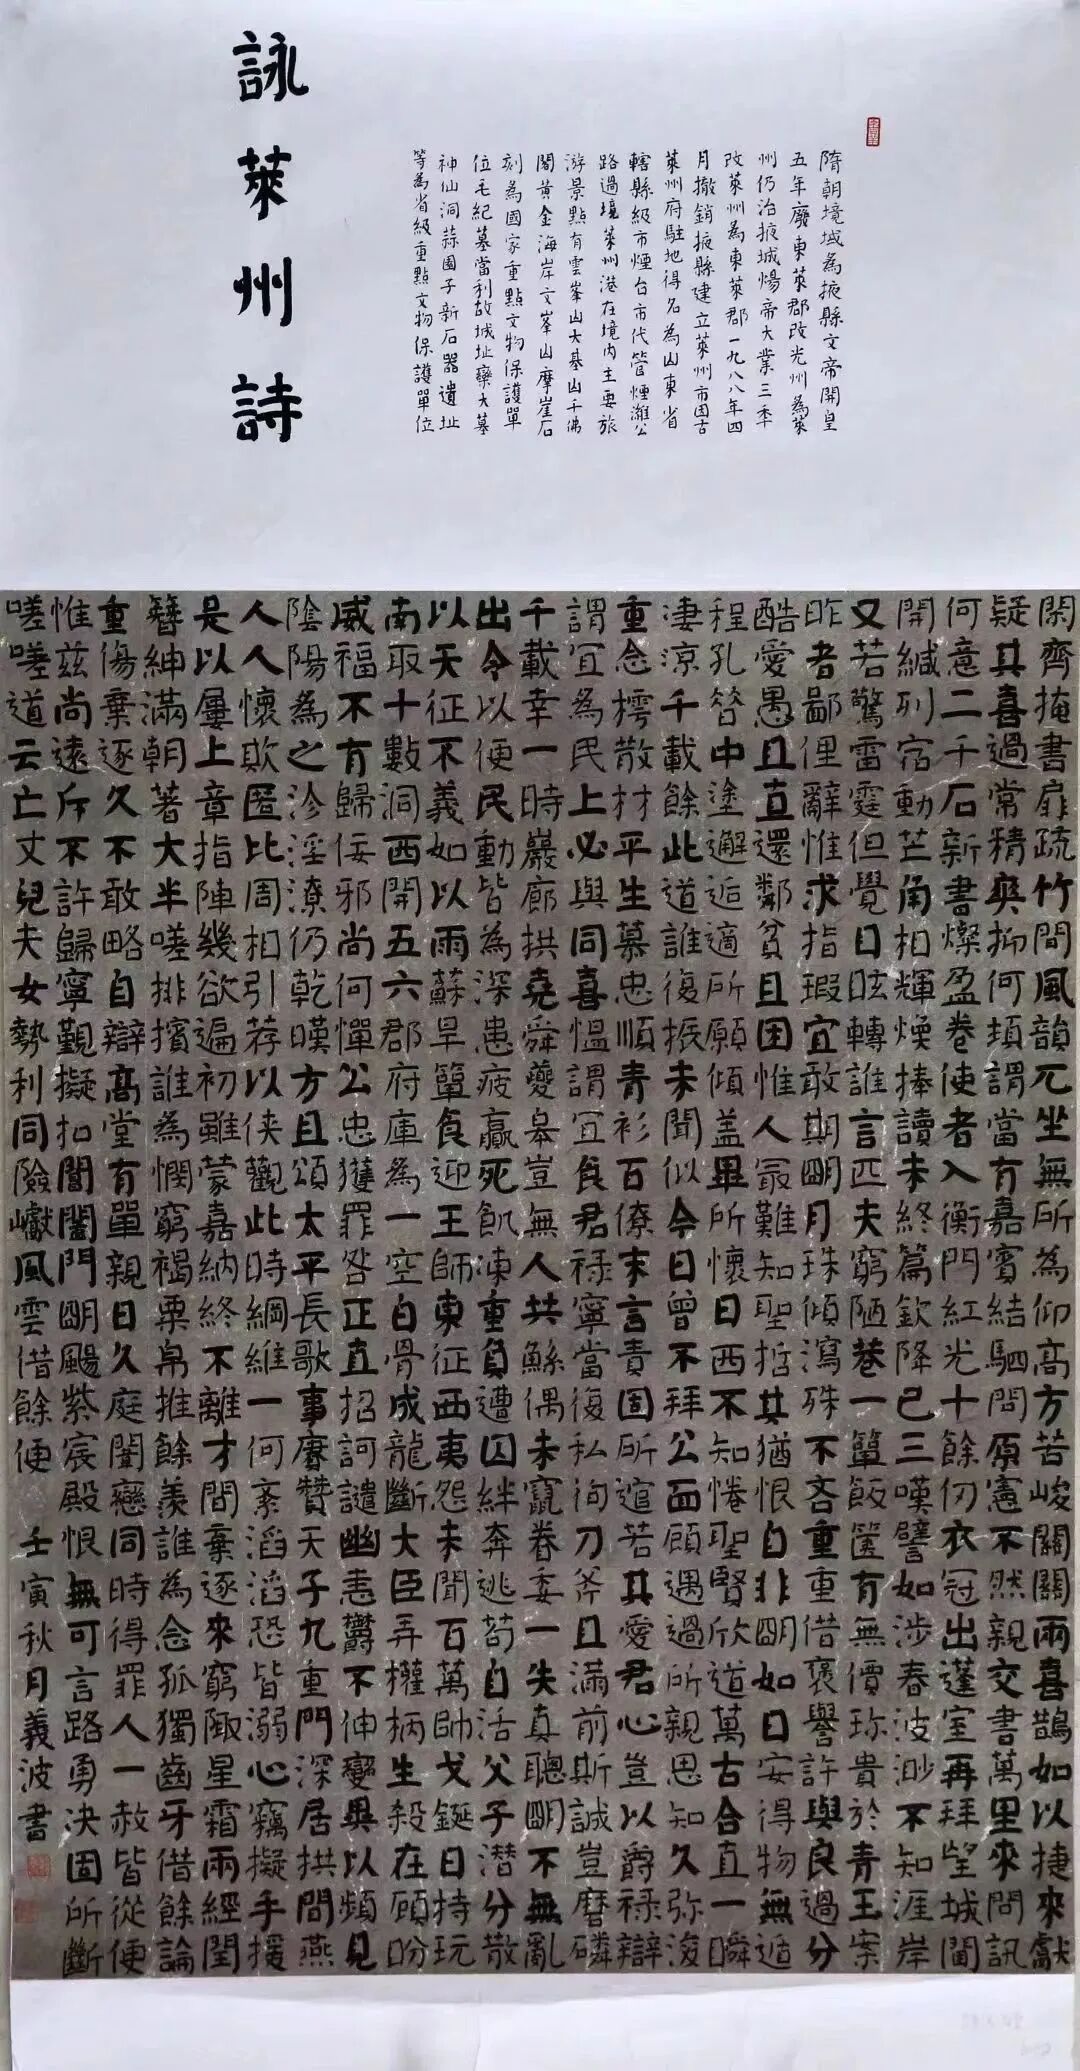 詠萊州詩
隋朝境域為掖縣文帝開皇
五年廢東萊郡改光州為萊
州仍治掖城煬帝大業三年
改萊州為東萊郡一九八八年四
月撤銷掖縣建立萊州市因古
萊州府駐地得名為山東省
轄縣級市煙台市代管煙濰公
路過境萊州港在境內主要旅
游景點有雲峯山大基山千佛
閣黃金海岸文峯山摩崖石
刻為國家重點文物保護單
位毛紀墓當利故城址欒大墓
神仙洞蒜園子新石器遺址
等為省級重點文物保護單位
閑齋掩書扉疏竹間風韻兀坐無所為仰高方苦峻關關兩喜鵲如以捷來獻
疑其喜過常精爽抑何頊謂當有嘉賓結駟問原憲不然親交書萬里來問訊
何意二千石新書燦盈卷使者入衡門紅光十餘仞衣冠出蓬室再拜望城闉
開緘列宿動芒角相輝煥捧讀未終篇欽降已三嘆譬如涉春波渺不知涯岸
又若驚雷霆但覺目眩轉誰言匹夫窮陋巷一簞飯篋有無價珍貴於青玉案
昨者鄙俚辭惟求指瑕宜敢期明月珠傾瀉殊不吝重重借褒譽許與良過分
酷愛愚且直還鄰貧且困惟人最難知聖哲其猶恨自非明如日安得物無遁
程孔替中塗邂逅適所願傾盖畢所懷日西不知惓聖賢欣道萬古合直一瞬
凄涼千載餘此道誰復振未聞似今日曾不拜公面顧遇過所親恩知久弥復
重念樗散材平生慕忠順青衫百僚末言責固所逭若其愛君心豈以爵祿辯
謂宜為民上必與同喜慍謂宜食君祿寧當復私徇刀斧且滿前斯誠豈磨磷
千載幸一時巖廊拱堯舜夔皋豈無人共鯀偶未竄眷委一失真聰明不無亂
出令以便民動皆為深患疲羸死飢凍重負遭囚絆奔逃苟自活父子潛分散
以天征不義如以雨蘇旱簞食迎王師東征西夷怨未聞百萬帥戈鋋日持玩
南取十數洞西開五六郡府庫為一空白骨成龍斷大臣弄權柄生殺在顧盼
威福不有歸佞邪尚何憚公忠獲罪咎正直招訶譴幽恚鬱不伸變異以頻見
陰陽為之沴淫潦仍乾暵方且頌太平長歌事賡贊天子九重門深居拱間燕
人人懷欺匿比周相引荐以俠觀此時綱維一何紊滔滔恐皆溺心竊擬手援
是以屢上章指陣幾欲遍初雖蒙嘉納終不離才間棄逐來窮陬星霜兩經閏
簪紳滿朝著大半嗟排擯誰為憫窮褐粟帛推餘羨誰為念孤獨齒牙借餘論
重傷棄逐久不敢略自辯高堂有單親日久庭闈戀同時得罪人一赦皆從便
惟茲尚遠斥不許歸寧覲擬扣閶闔門明颺紫宸殿恨無可言路勇決固所斷
嗟嗟道云亡丈兒夫女勢利同險巇風雲借餘便 壬寅秋月義波書